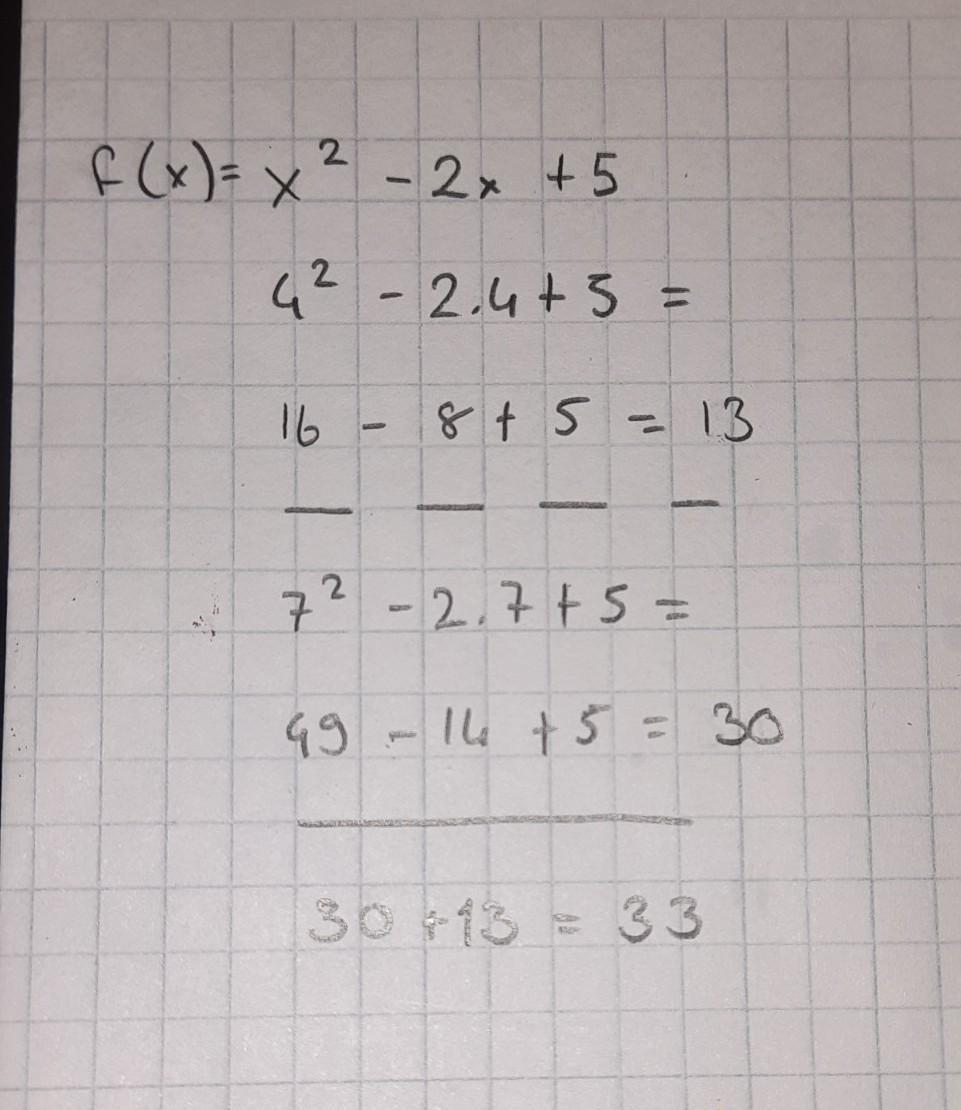 f(x)= x² - 2x + 5
4² - 2.4 + 5 =
16 - 8 + 5 = 13
7² - 2.7 + 5 =
49 - 14 + 5 = 30
30 + 13 = 33